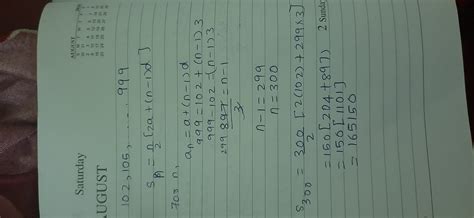 AUGUST
Saturday
AUGUST
102, 105, ..... 999
Sn = n/2 [2a + (n-1)d]
an = a + (n-1)d
999 = 102 + (n-1)3
999 - 102 = (n-1)3
299 897/3 = n-1
n-1 = 299
n = 300
S300 = 300/2 [2(102) + 299×3]
= 150 [204 + 897]
= 150 [1101]
= 165150
2 Sunday